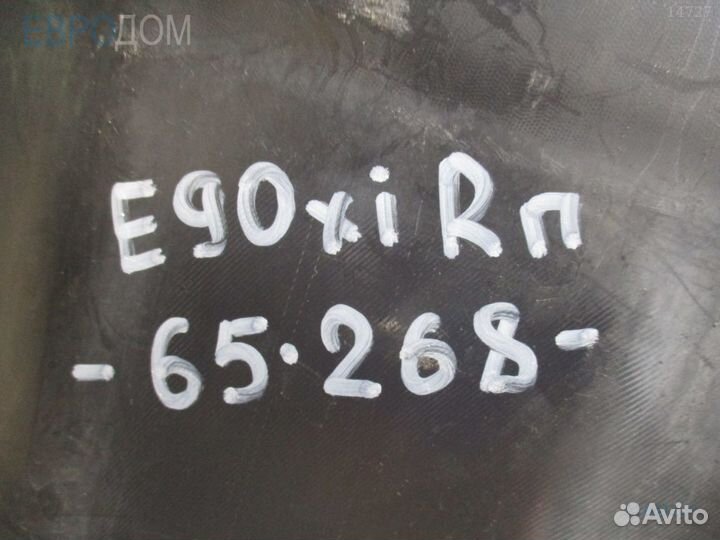 ЕВРОДОМ
14727
E90xi Rп
-65.268-
Avito